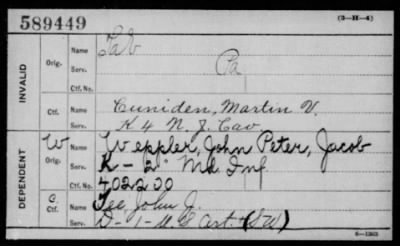 589449
(3—H—4)
INVALID
Orig.
Name
Serv.
Pa
Ctf. No.
Ctf.
Name Cuniden, Martin V.
Serv. K 4 N. J. Cav
DEPENDENT
W
Orig.
Name Weppler, John Peter, Jacob
Serv. K - 2" Md Inf.
Ctf. No. 402200
C.
Ctf.
Name Lee, John J.
Serv. D - 1 - U S Art. (S W)
6—1363